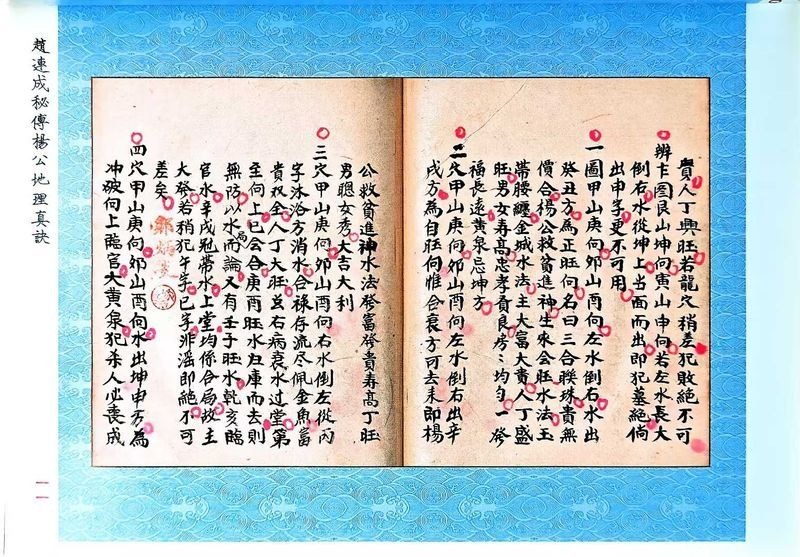 貴人丁興旺若龍穴稍差犯敗絕不可
辨卞圖艮山坤向寅山申向若左水長大
倒右水從坤上當面而出即犯墓絕倘
出申字更不可用
一圖甲山庚向夘山酉向左水倒右水出
癸丑方為正旺向名曰三合聯珠貴無
價合楊公救貧進神生來會旺水法玉
帶腰纏金城水法主大富大貴人丁盛
旺男女壽高忠孝賢良房々均勻一發
福長遠黃泉忌坤方
二穴甲山庚向夘山酉向左水倒右出辛
戌方為自旺向惟合衰方可去未即楊
公救貧進神水法發富發貴壽高丁旺
男聰女秀大吉大利
三穴甲山庚向夘山酉向右水倒左從丙
字沐浴方消水合祿存流尽佩金魚富
貴双全人丁大旺並右病衰水过堂第
至向上巳会合庚酉旺水归庫而去則
無防以水局而論又有壬子旺水乾亥臨
官水辛戌冠帶水上堂均係合局故主
大發若稍犯午字巳字非滛即絕不可
差矣
四穴甲山庚向夘山酉向水出坤申方為
冲破向上臨官大黃泉犯杀人必喪成
趙連成秘傳楊公地理真訣
一一